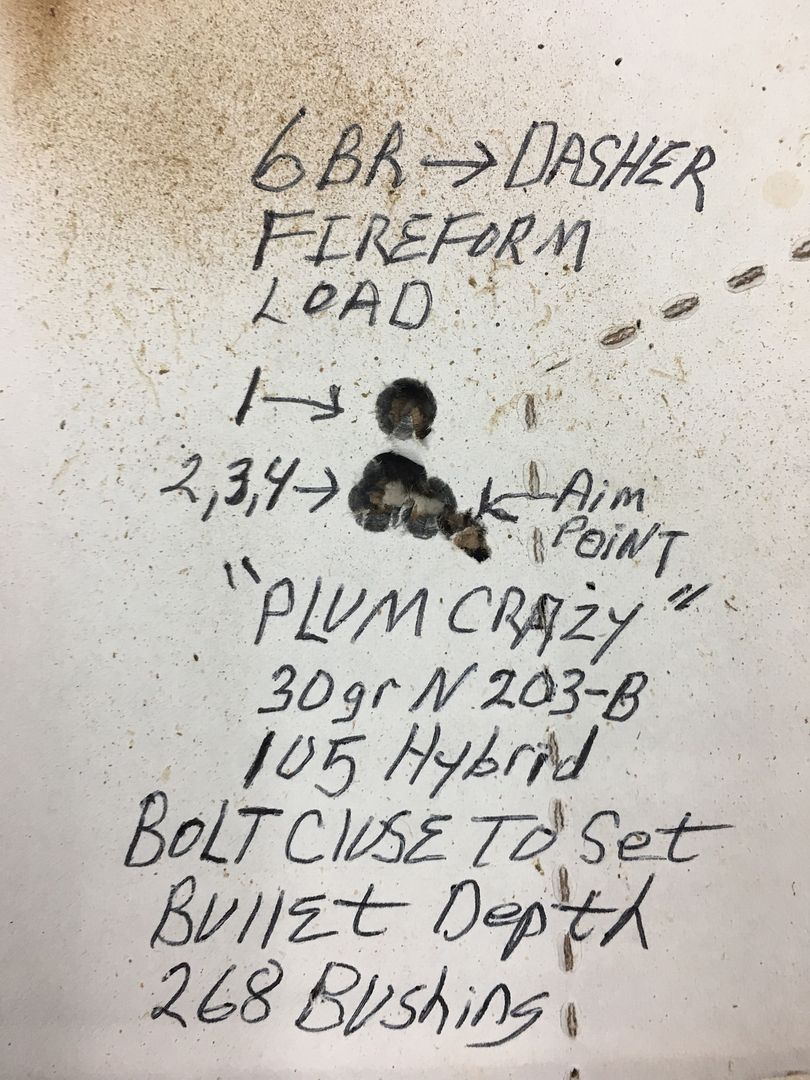 6BR → DASHER
FIREFORM
LOAD
1 →
2,3,4 →
← Aim
POiNT
"PLUM CRAZY"
30gr N 203-B
105 Hybrid
BOLT ClOSE TO Set
BUllEt Depth
268 Bushing